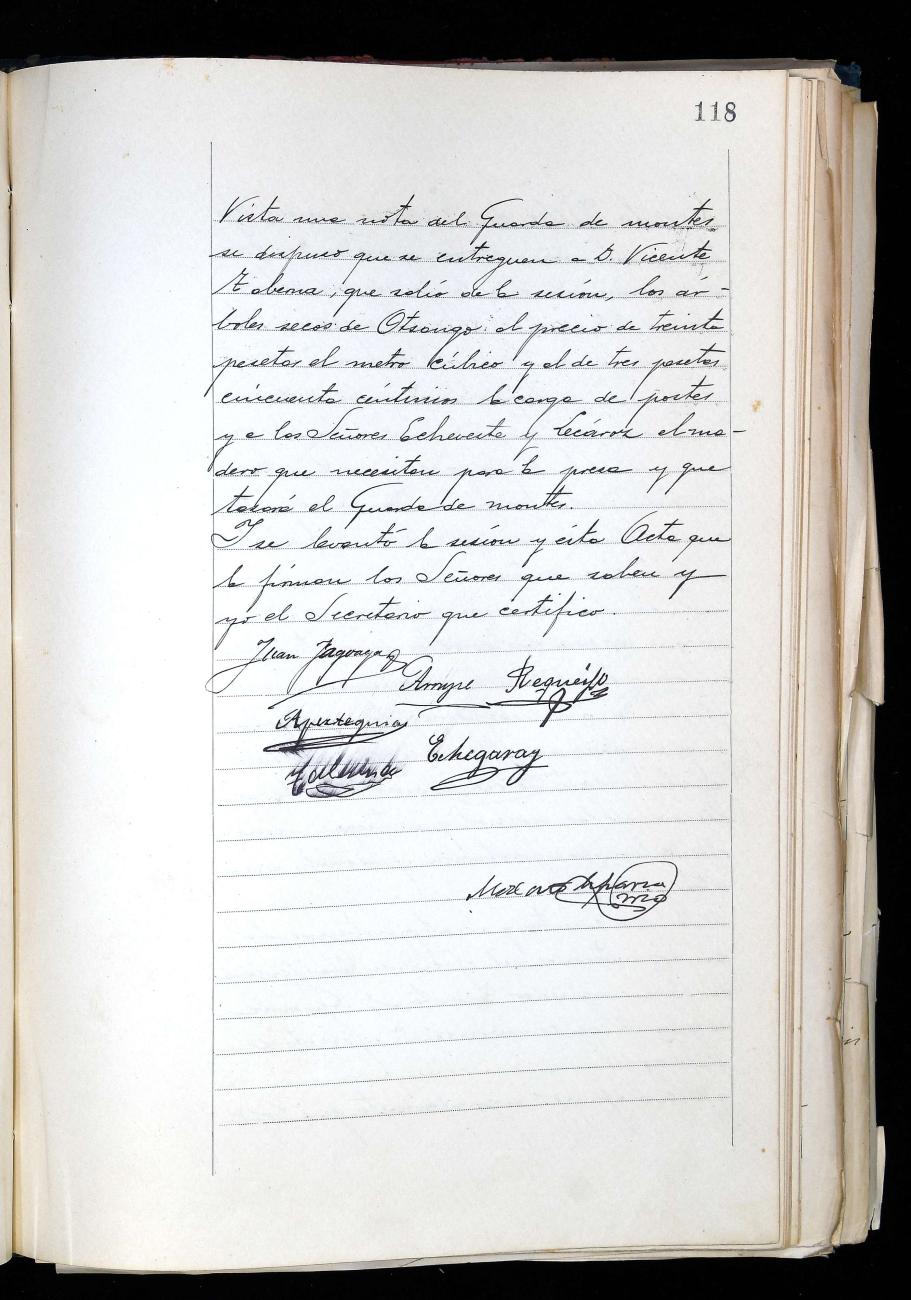 118
Vista una nota del Guarda de montes,
se dispuso que se entreguen a D. Vicente
Taberna, que salió de la sesión, los ár-
boles secos de Otsango al precio de treinta
pesetas el metro cúbico y al de tres pesetas
cincuenta céntimos la carga de postes
y a los Señores Echeveste y Lecároz el ma-
dero que necesitan para la presa y que
tasará el Guarda de montes.
Y se levantó la sesión y ésta Acta que
la firman los Señores que saben y
yo el Secretario que certifico.
Juan Jagoaga
Arrupe Regueiro
Apezteguia
Echegaray